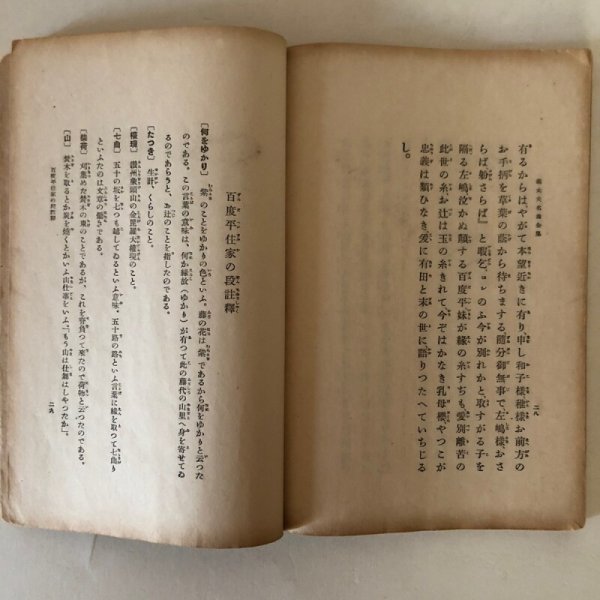 義太夫名曲全集
二八
有るからはやがて本望近きに有り、申し和子樣稚樣お前方の
お手柄を草葉の蔭から待ちまする、隨分御無事で左嶋樣、おさ
らば船さらば』と暇乞。コレのふ今が別れかと、取すがる子を
隔る左嶋泣かぬ顏する百度平妹が緣の糸すぢも愛別離苦の
此世の糸お辻は玉の糸きれて今ぞはかなき乳母櫻やつこが
忠義は類ひなき愛に有田と末の世に語りつたへていちじる
し。
百度平住家の段註釋
〔何をゆかり〕 紫のことをゆかりの色といふ。藤の花は紫であるから何をゆかりと云つた
のである。この言葉の意味は、何か緣故(ゆかり)が有つて此の藤代の山里へ身を寄せてゐ
るのであらうと、お辻のことを指したのである。
〔たつき〕 生計、くらしのこと。
〔權現〕 讃州象頭山の金毘羅大權現のこと。
〔七曲〕 五十の坂を七つも越してゐるといふ意味。五十路の路といふ言葉に緣を取つて七曲り
といふたのは文章の綾である。
〔荷〕 刈集めた焚木の束のことであるが、これを脊負つて來たので荷物と云つたのである。
〔山〕 焚木を取るとか炭を燒くとかいふ山仕事をいふ、「もう山は仕舞はしやつたか」。
百度平住家の段註釋
二九